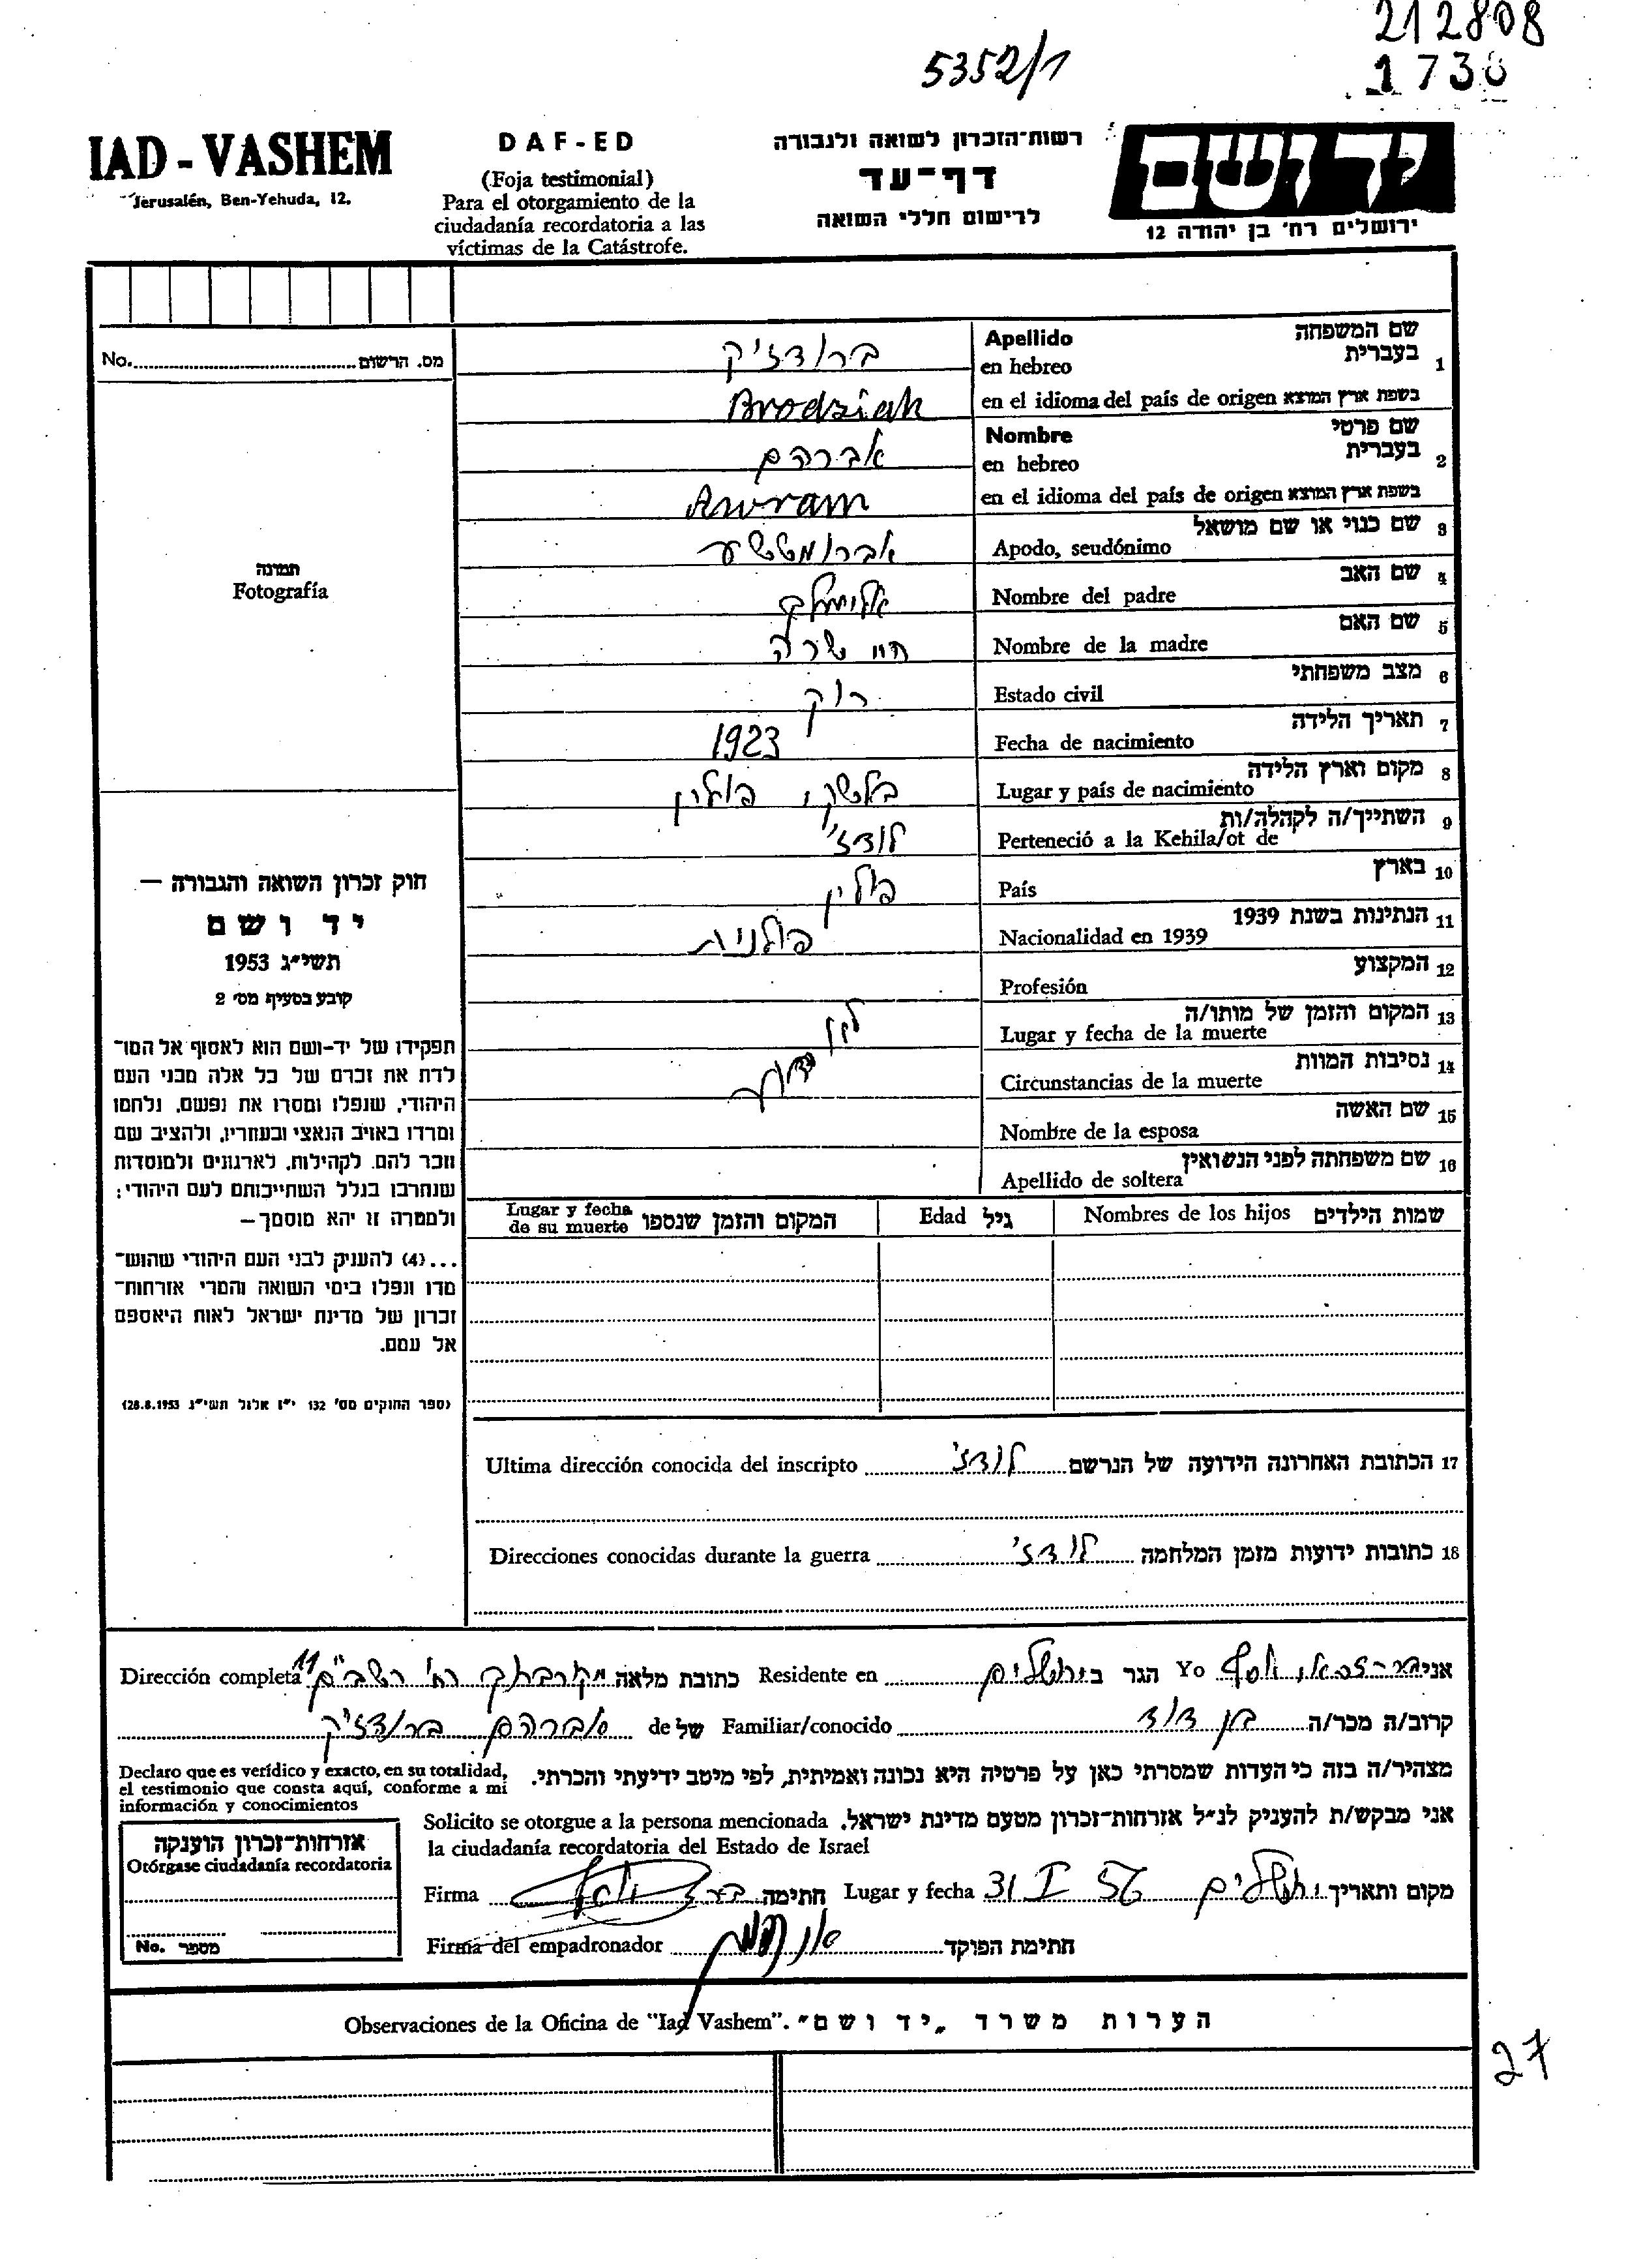 212808
5352/1
1730
IAD - VASHEM
Jerusalén, Ben-Yehuda, 12.
DAF-ED
(Foja testimonial)
Para el otorgamiento de la
ciudadanía recordatoria a las
víctimas de la Catástrofe.
רשות־הזכרון לשואה ולגבורה
דף־עד
לרישום חללי השואה
יד ושם
ירושלים רח׳ בן יהודה 12
No. מס. הרשום
תמונה
Fotografía
1 שם המשפחה בעברית Apellido en hebreo ברודז׳יק
בשפת ארץ המוצא en el idioma del país de origen Brodziak
2 שם פרטי בעברית Nombre en hebreo אברהם
בשפת ארץ המוצא en el idioma del país de origen Avram
3 שם כנוי או שם מושאל Apodo, seudónimo
4 שם האב Nombre del padre אלימלך
5 שם האם Nombre de la madre שרה
6 מצב משפחתי Estado civil רוק
7 תאריך הלידה Fecha de nacimiento 1923
8 מקום וארץ הלידה Lugar y país de nacimiento פולין
9 השתייך/ה לקהלה/ות Perteneció a la Kehila/ot de לודז׳
10 בארץ País פולין
11 הנתינות בשנת 1939 Nacionalidad en 1939 פולנית
12 המקצוע Profesión
13 המקום והזמן של מותו/ה Lugar y fecha de la muerte
14 נסיבות המוות Circunstancias de la muerte
15 שם האשה Nombre de la esposa
16 שם משפחתה לפני הנשואין Apellido de soltera
שמות הילדים Nombres de los hijos
גיל Edad
המקום והזמן שנספו Lugar y fecha de su muerte
חוק זכרון השואה והגבורה —
יד ושם
תשי״ג 1953
קובע בסעיף מס׳ 2
תפקידו של יד־ושם הוא לאסוף אל המו־
לדת את זכרם של כל אלה מבני העם
היהודי, שנפלו ומסרו את נפשם, נלחמו
ומרדו באויב הנאצי ובעוזריו, ולהציב שם
וזכר להם, לקהילות, לארגונים ולמוסדות
שנחרבו בגלל השתייכותם לעם היהודי;
ולמטרה זו יהא מוסמך—
...(4) להעניק לבני העם היהודי שהוש־
מדו ונפלו בימי השואה והמרי אזרחות־
זכרון של מדינת ישראל לאות היאספם
אל עמם.
(ספר החוקים מס׳ 132 י״ז אלול תשי״ג 28.8.1953)
17 הכתובת האחרונה הידועה של הנרשם לודז׳ Ultima dirección conocida del inscripto
18 כתובות ידועות מזמן המלחמה לודז׳ Direcciones conocidas durante la guerra
אני Yo הגר ב ירושלים Residente en כתובת מלאה Dirección completa
קרוב/ה מכר/ה בן דוד Familiar/conocido של de אברהם ברודז׳יק
מצהיר/ה בזה כי העדות שמסרתי כאן על פרטיה היא נכונה ואמיתית, לפי מיטב ידיעתי והכרתי.
Declaro que es verídico y exacto, en su totalidad,
el testimonio que consta aquí, conforme a mi
información y conocimientos
אני מבקש/ת להעניק לנ״ל אזרחות־זכרון מטעם מדינת ישראל.
Solicito se otorgue a la persona mencionada
la ciudadanía recordatoria del Estado de Israel
אזרחות־זכרון הוענקה
Otórgase ciudadanía recordatoria
No. מספר
מקום ותאריך ירושלים 31 I 56 Lugar y fecha חתימה Firma
חתימת הפוקד Firma del empadronador
הערות משרד „יד ושם״ Observaciones de la Oficina de "Iad Vashem".
27